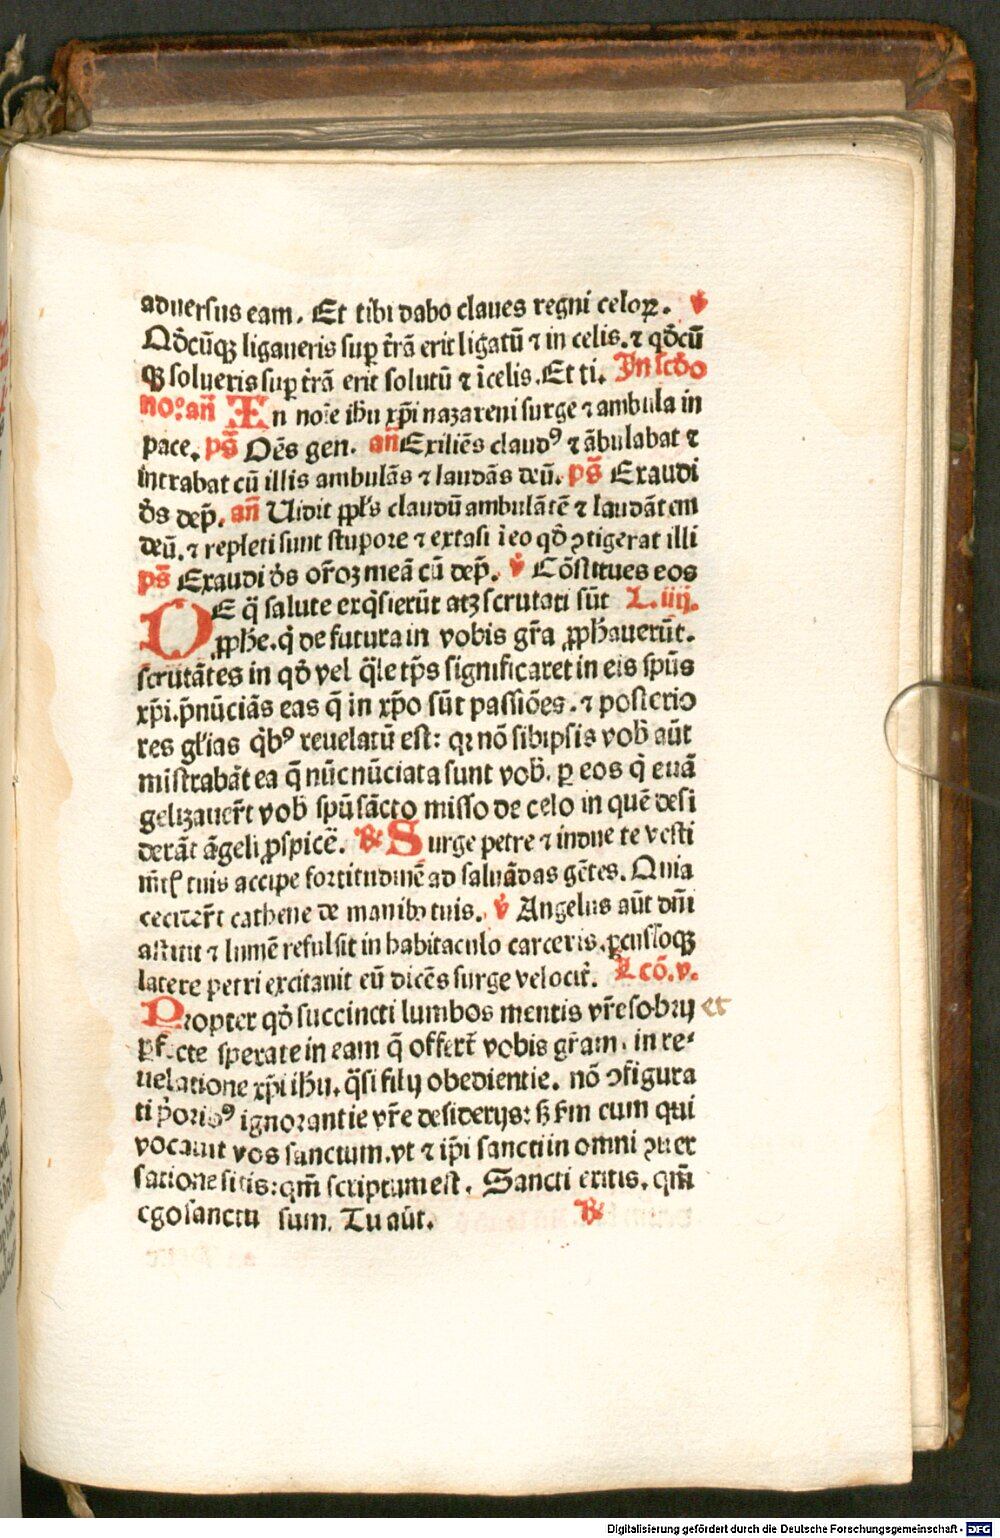 aduersus eam. Et tibi dabo claues regni celoꝝ. ℣
Qd̄cūqꝫ ligaueris suꝑ t̄rā erit ligatū ⁊ in celis. ⁊ qd̄cū
qꝫ solueris suꝑ t̄rā erit solutū ⁊ ī celis. Et ti. In sc̄do
no.º an̄ In noīe ihū xp̄i nazareni surge ⁊ ambula in
pace. ps̄ Oēs gen. an̄ Exiliēs claudꝰ ⁊ ābulabat ⁊
intrabat cū illis ambulās ⁊ laudās deū. ps̄ Exaudi
ds̄ dep̄. an̄ Uidit ppl̄s claudū ambulātē ⁊ laudātem
deū. ⁊ repleti sunt stupore ⁊ extasi ī eo qd̄ ↄtigerat illi
ps̄ Exaudi ds̄ or̄oꝫ meā cū dep̄. ℣ Cōstitues eos
DE q̄ salute exq̄sierūt atqꝫ scrutati sūt L. iiij.
ꝓphe. q̄ de futura in vobis gr̄a ꝓphauerūt.
scrutātes in qd̄ vel q̄le tp̄s significaret in eis sp̄us
xp̄i. p̄nūciās eas q̄ in xp̄o sūt passiōes. ⁊ posterio
res gl̄ias q̄bꝰ reuelatū est: qꝛ nō sibiipsis vob̄ aūt
mistrabāt ea q̄ nūc nūciata sunt vob̄. ꝑ eos q̄ euā
gelizauer̄t vob̄ sp̄u sācto misso de celo in quē desi
derāt āgeli ꝓspicē. ℟ Surge petre ⁊ indue te vesti
mēt̄ tuis accipe fortitudinē ad saluādas gētes. Quia
cecider̄t cathene de manibꝰ tuis. ℣ Angelus aūt dn̄i
astitit ⁊ lumē refulsit in habitaculo carceris. ꝑcussoqꝫ
latere petri excitauit eū dicēs surge velocit̄. Lcō. v.
Propter qd̄ succincti lumbos mentis vr̄e sobrij et
ꝑfecte sperate in eam q̄ offert̄ vobis gr̄am. in re-
uelatione xp̄i ihū. q̄si filij obedientie. nō ↄfigura
ti p̄oribꝰ ignorantie vr̄e desiderijs: sꝫ fm̄ cum qui
vocauit vos sanctum. vt ⁊ ip̄i sancti in omni ↄuer
satione sitis: qm̄ scriptum est. Sancti eritis. qm̄
ego sanctu sum. Tu aūt. ℟
Digitalisierung gefördert durch die Deutsche Forschungsgemeinschaft - DFG